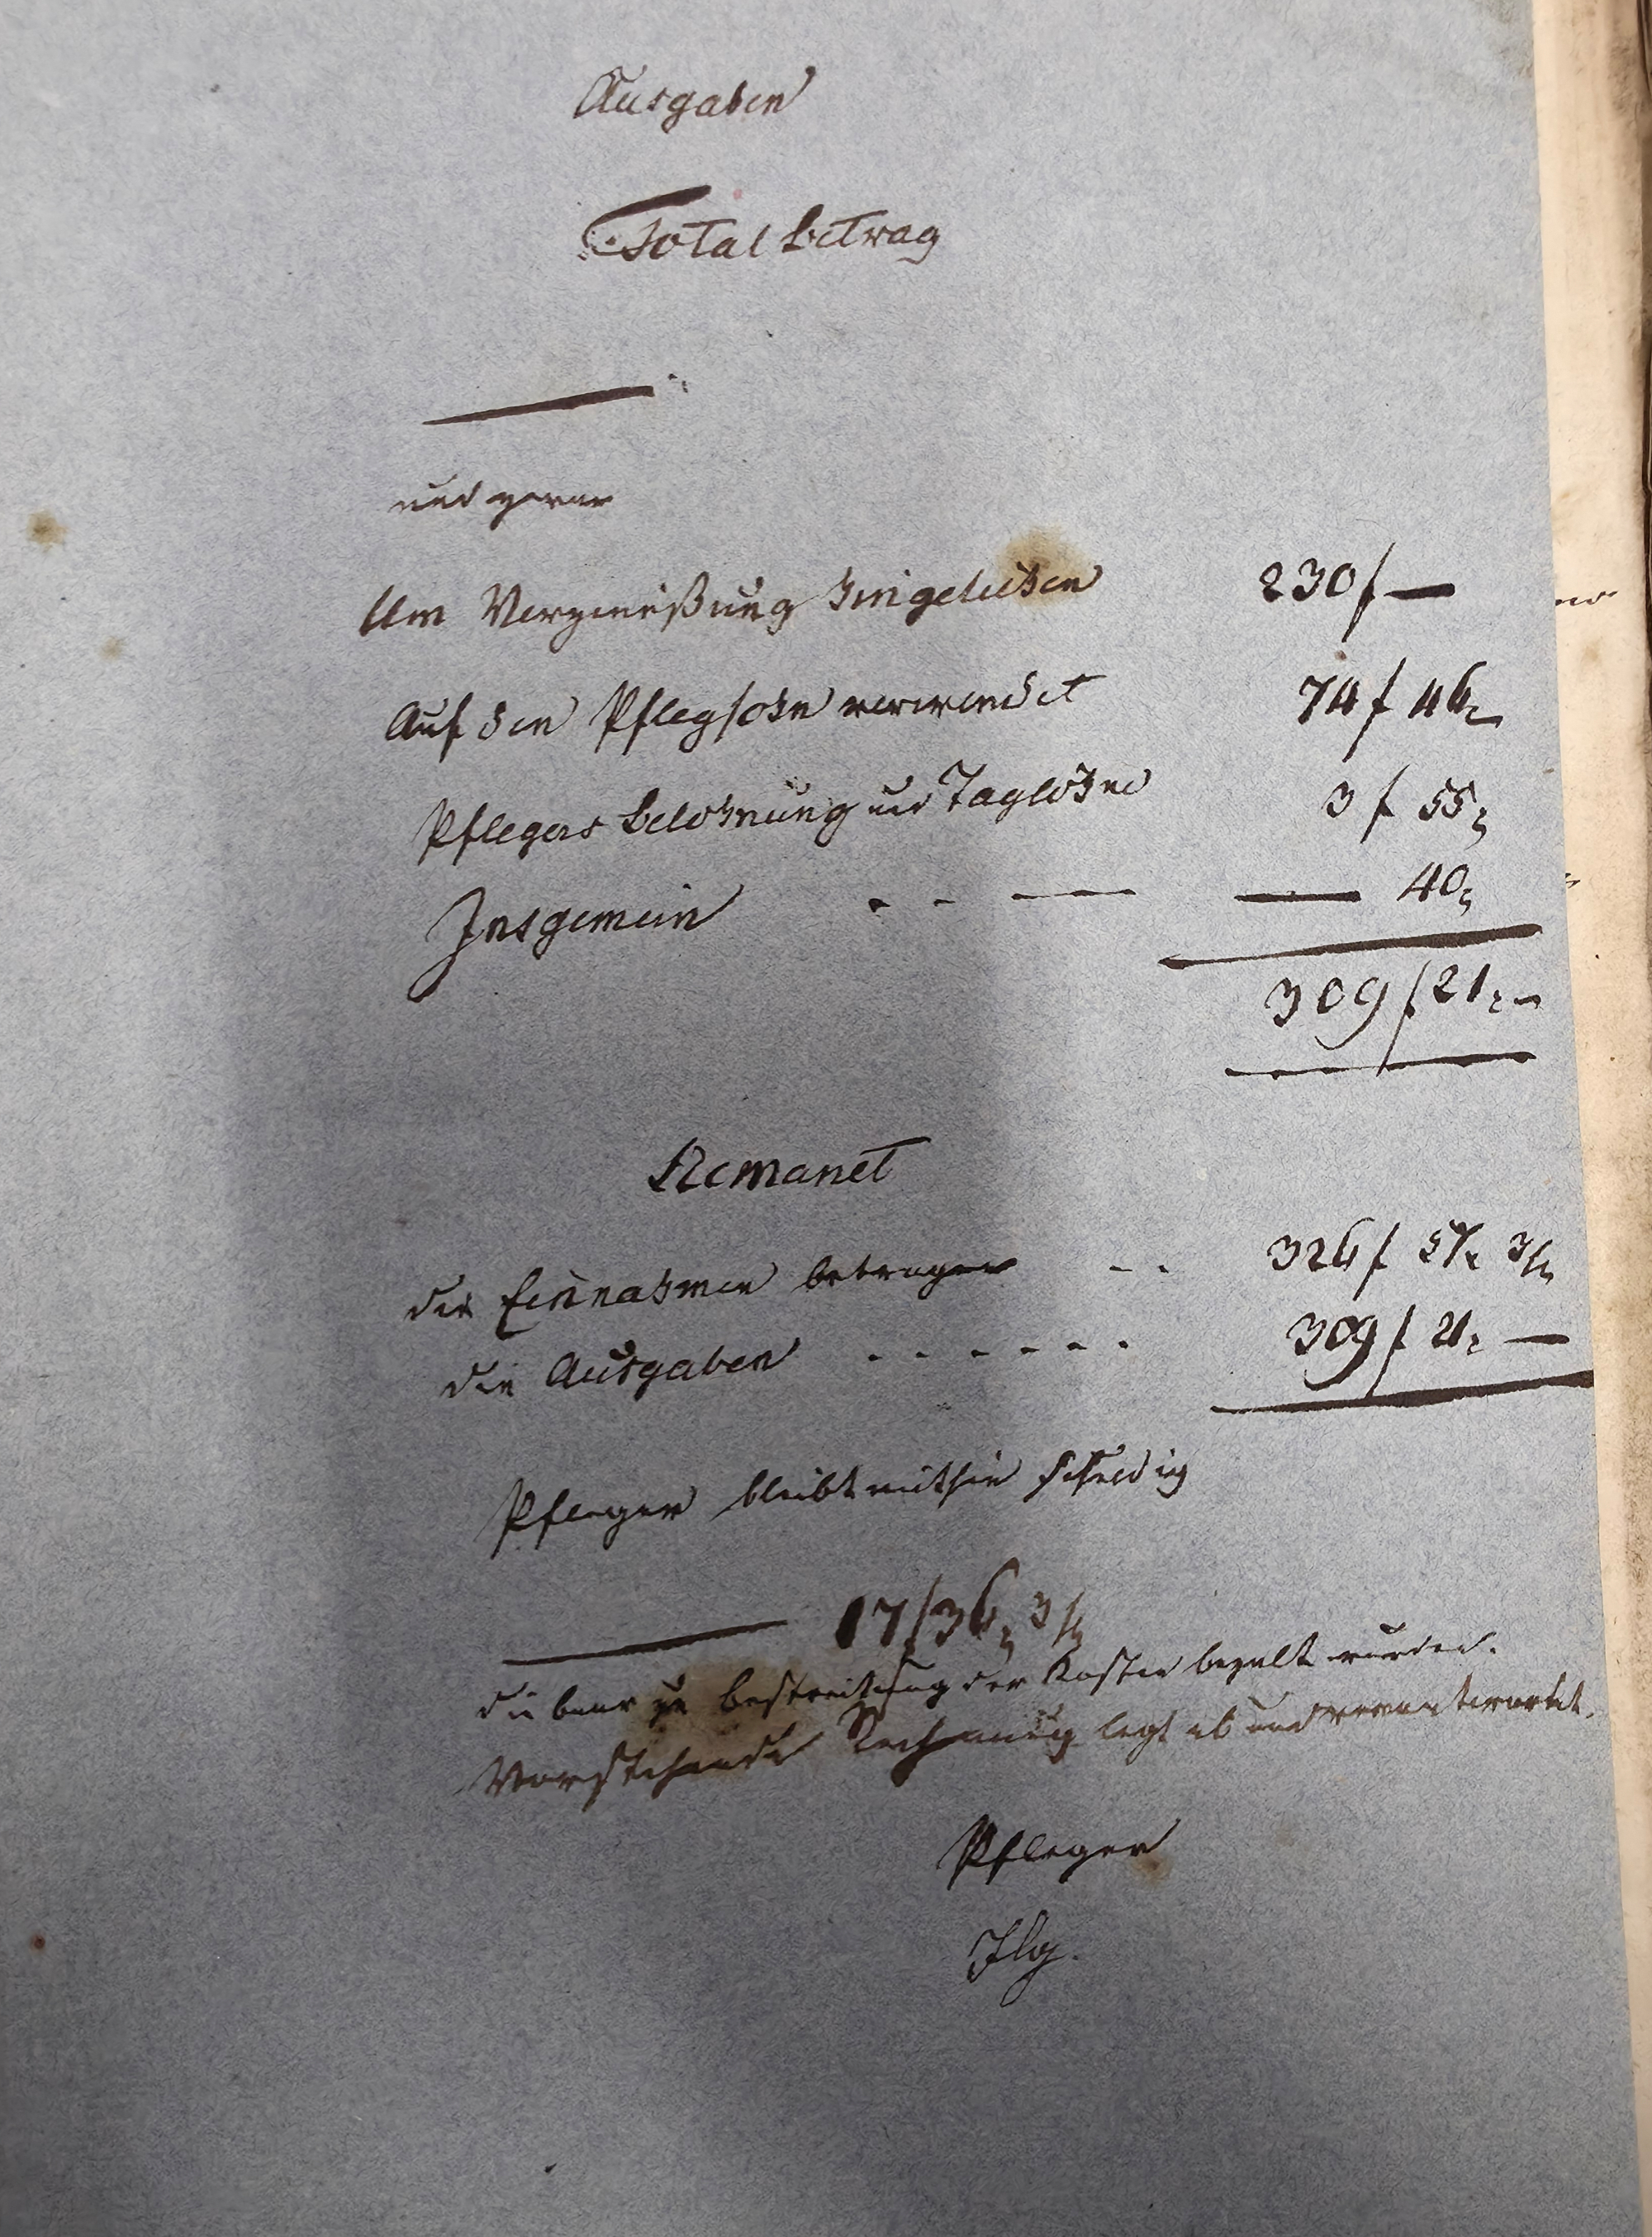 Ausgaben
Total betrag
und zwar
Um Verzinßung hingeliehen 230 f —
Auf den Pflegsohn verwendet 74 f 46
Pflegers belohnung und Taglöhne 3 f 55
Insgemein - - — — 40
309 f 21 -
Remanet
die Einnahmen betragen - - 326 f 57 3/4
die Ausgaben - - - - - - 309 f 21 —
Pfleger bleibt mithin schuldig
— 17 f 36 3/4
die baar zu bestreitung der Kosten bezalt wurden.
Vorstehende Rechnung legt ab und verantwortet.
Pfleger
Ilg.